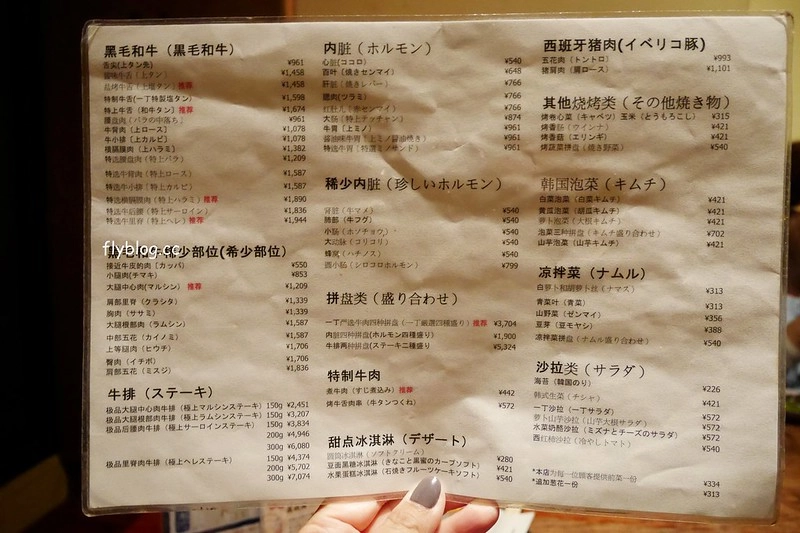 黑毛和牛（黒毛和牛）
舌尖(上タン先) ¥961
盐味牛舌（上タン） ¥1,458
盐烤牛舌（上塩タン）推荐 ¥1,458
特制牛舌(一丁特製塩タン) ¥1,598
特上牛舌（和牛タン）推荐 ¥1,674
腰盘肉（バラの中落ち） ¥961
牛背肉（上ロース） ¥1,078
牛小排（上カルビ） ¥1,078
横膈膜肉（上ハラミ） ¥1,382
特选腰盘肉（特上バラ） ¥1,209
特选牛背肉（特上ロース） ¥1,587
特选牛小排（特上カルビ） ¥1,587
特选横膈膜肉（特上ハラミ）推荐 ¥1,890
特选牛后腰（特上サーロイン） ¥1,836
特选牛里脊（特上ヘレ）推荐 ¥1,944
flyblog.cc
黑毛和牛稀少部位(希少部位)
接近牛皮的肉（カッパ） ¥550
小腿肉(チマキ) ¥853
大腿中心肉(マルシン）推荐 ¥1,209
肩部里脊（クラシタ） ¥1,339
胸肉（ササミ） ¥1,339
大腿根部肉（ラムシン） ¥1,587
中部五花（カイノミ） ¥1,587
上等腿肉（ヒウチ） ¥1,706
臀肉（イチボ） ¥1,706
肩部五花（ミスジ） ¥1,836
牛排（ステーキ）
极品大腿中心肉牛排（極上マルシンステーキ）150g ¥2,451
极品大腿根部肉牛排（極上ラムシンステーキ）150g ¥3,207
极品后腰肉牛排（極上サーロインステーキ）150g ¥3,834
200g ¥4,946
300g ¥6,080
极品里脊肉牛排（極上ヘレステーキ）150g ¥4,374
200g ¥5,702
300g ¥7,074
内脏（ホルモン）
心脏(ココロ) ¥540
百叶（焼きセンマイ） ¥648
肝脏（焼きレバー） ¥766
腮肉(ツラミ) ¥766
红肚儿（赤センマイ） ¥766
大肠（特上テッチャン） ¥874
牛胃（上ミノ） ¥961
酱油味牛胃（上ミノ醤油焼き） ¥961
特选牛胃（特選ミノサンド） ¥961
稀少内脏（珍しいホルモン）
肾脏（牛マメ） ¥540
肺部（牛フグ） ¥540
小肠（ホソチョウ） ¥540
大动脉（コリコリ） ¥540
蜂窝（ハチノス） ¥540
圆小肠（シロコロホルモン） ¥799
拼盘类（盛り合わせ）
一丁严选牛肉四种拼盘（一丁厳選四種盛り）推荐 ¥3,704
内脏四种拼盘(ホルモン四種盛り) ¥1,900
牛排两种拼盘(ステーキ二種盛り) ¥5,324
特制牛肉
煮牛肉（すじ煮込み）推荐 ¥442
烤牛舌肉串（牛タンつくね） ¥572
甜点冰淇淋（デザート）
圆筒冰淇淋（ソフトクリーム） ¥280
豆面黑糖冰淇淋（きなこと黒蜜のカーブソフト） ¥421
水果蛋糕冰淇淋（石焼きフルーツケーキソフト） ¥540
西班牙猪肉(イベリコ豚）
五花肉（トントロ） ¥993
猪肩肉（肩ロース） ¥1,101
其他烧烤类（その他焼き物）
烤卷心菜（キャベツ）玉米（とうもろこし） ¥315
烤香肠（ウインナ） ¥421
烤香菇（エリンギ） ¥421
烤蔬菜拼盘（焼き野菜） ¥540
韩国泡菜（キムチ）
白菜泡菜（白菜キムチ） ¥421
黄瓜泡菜（胡瓜キムチ） ¥421
萝卜泡菜（大根キムチ） ¥421
泡菜三种拼盘（キムチ盛り合わせ） ¥702
山芋泡菜（山芋キムチ） ¥421
凉拌菜（ナムル）
白萝卜和胡萝卜丝（ナマス） ¥313
青菜叶（青菜） ¥313
山野菜（ゼンマイ） ¥356
豆芽（豆モヤシ） ¥388
凉拌菜拼盘（ナムル盛り合わせ） ¥540
沙拉类（サラダ）
海苔（韓国のり） ¥226
韩式生菜（チシャ） ¥421
一丁沙拉（一丁サラダ） ¥572
萝卜山芋沙拉（山芋大根サラダ） ¥572
水菜奶酪沙拉（ミズナとチーズのサラダ） ¥572
西红柿沙拉（冷やしトマト） ¥540
*本店为每一位顾客提供前菜一份 ¥334
*追加葱花一份 ¥313